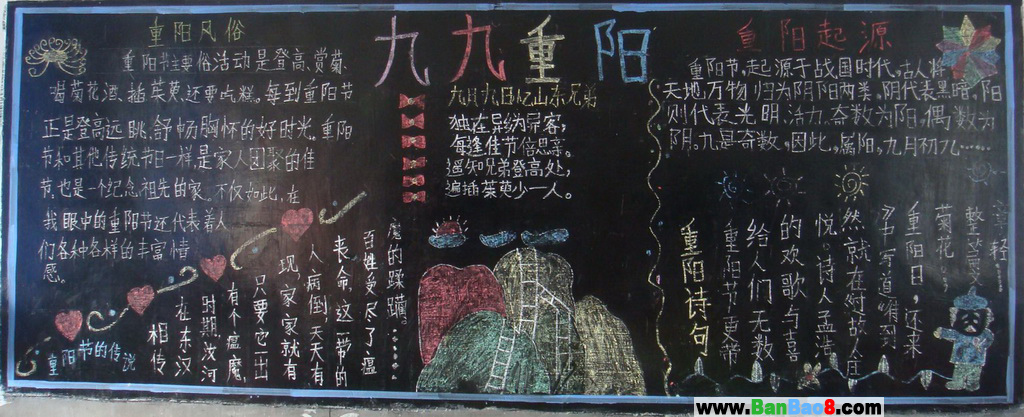 重阳风俗
重阳节主要俗活动是登高、赏菊、
喝菊花酒、插茱萸、还要吃糕。每到重阳节
正是登高远眺、舒畅胸怀的好时光。重阳
节和其他传统节日一样,是家人团聚的佳
节,也是一个纪念祖先的家。不仅如此,在
我眼中的重阳节还代表着人
们各种各样的丰富情
感。
九九重阳
九月九日忆山东兄弟
独在异乡为异客,
每逢佳节倍思亲。
遥知兄弟登高处,
遍插茱萸少一人。
重阳起源
重阳节,起源于战国时代。古人将
天地,万物归为阴阳两类。阴代表黑暗,阳
则代表光明、活力。奇数为阳,偶数为
阴。九是奇数,因此,属阳。九月初九……
重阳节的传说
相传
在东汉
时期,汝河
有个瘟魔,
只要它一出
现,家家就有
人病倒,天天有
丧命,这一带的
百姓受尽了瘟
魔的蹂躏。……
重阳诗句
重阳节更带
给人们无数
的欢歌与喜
悦。诗人孟浩
然就在《过故人庄
》中写道“待到
重阳日,还来
菊花
www.BanBao8.com